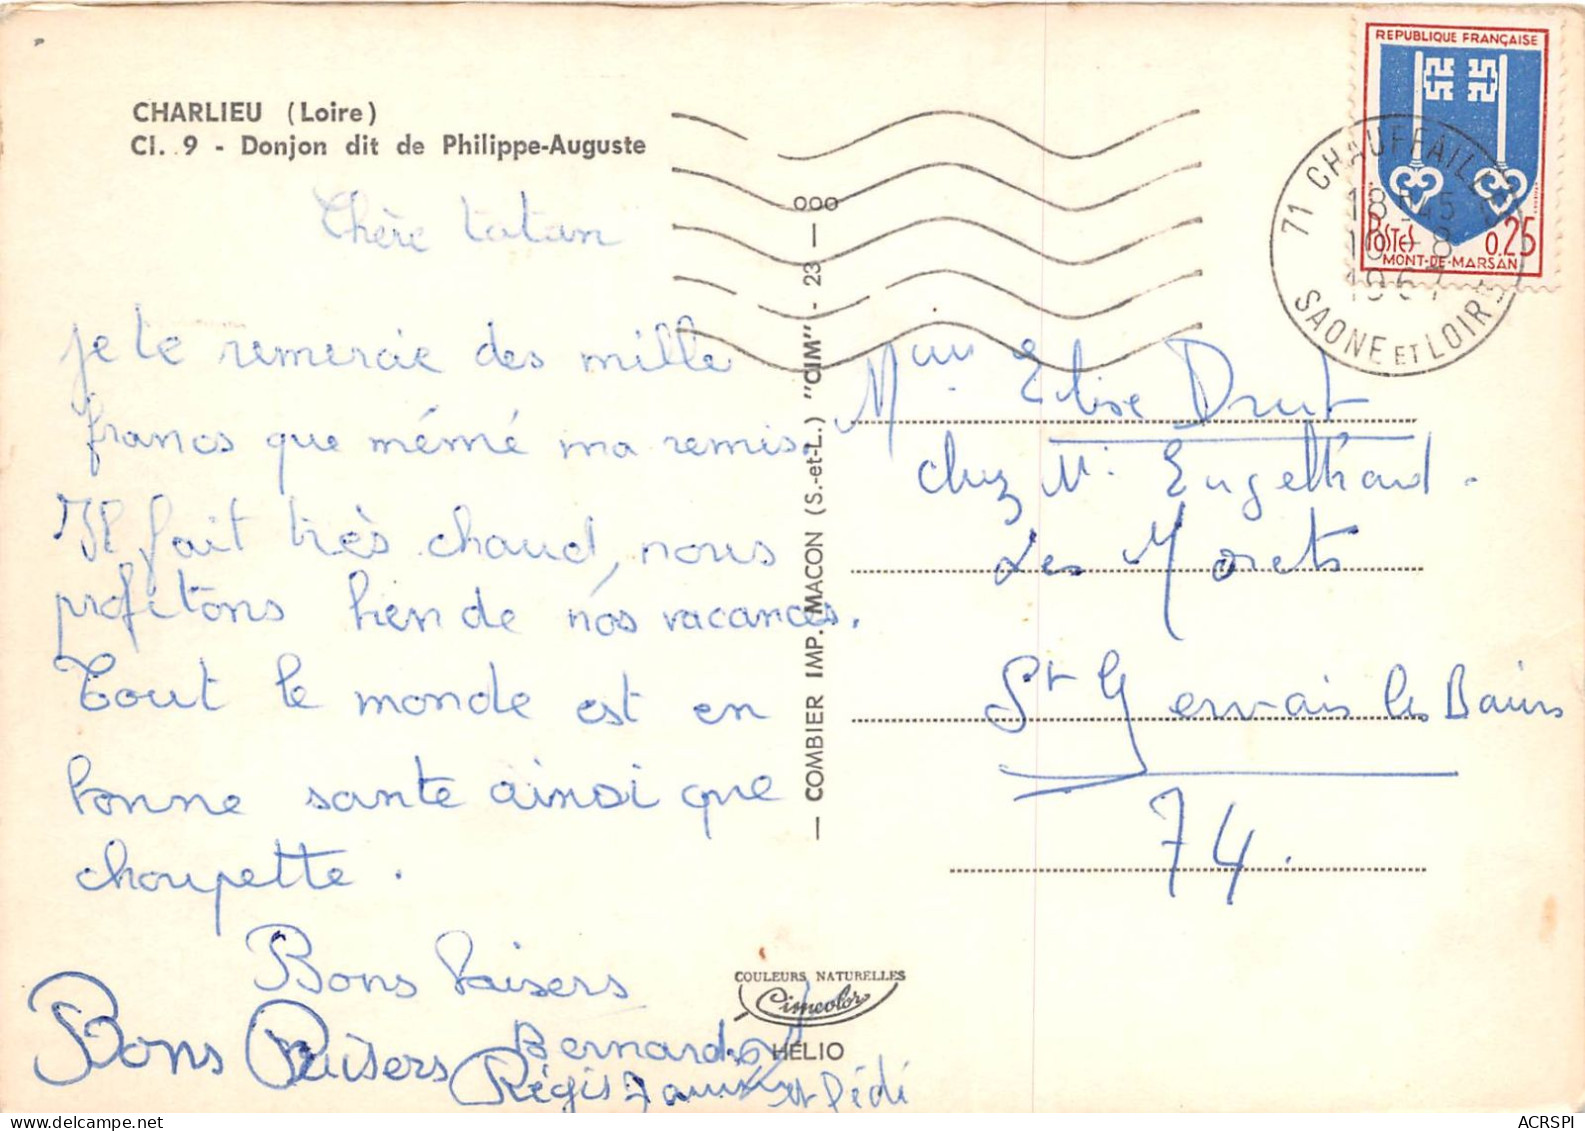 CHARLIEU (Loire)
Cl. 9 - Donjon dit de Philippe-Auguste
Chère tatan
je te remercie des mille
francs que mémé ma remis.
Il fait très chaud, nous
profitons bien de nos vacances.
Tout le monde est en
bonne sante ainsi que
choupette.
Bons baisers
Bons Baisers Bernard
Régis et Dédé
— COMBIER IMP. MACON (S.-et-L.) "CIM" - 23 — 000
COULEURS NATURELLES
Cimcolor
HÉLIO
REPUBLIQUE FRANÇAISE
POSTES 0,25
MONT-DE-MARSAN
71 CHAUFFAILLES
18H45
18-8
1967
SAONE ET LOIRE
Mme Elise Drut
chez Mr Engelhard.
Les Morets
St Gervais les Bains
74.
ACRSPI